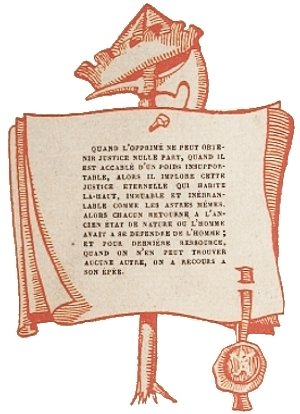 QUAND L'OPPRIMÉ NE PEUT OBTE-
NIR JUSTICE NULLE PART, QUAND IL
EST ACCABLÉ D'UN POIDS INSUPPOR-
TABLE, ALORS IL IMPLORE CETTE
JUSTICE ETERNELLE QUI HABITE
LA-HAUT, IMMUABLE ET INÉBRAN-
LABLE COMME LES ASTRES MÊMES.
ALORS CHACUN RETOURNE A L'AN-
CIEN ÉTAT DE NATURE OU L'HOMME
AVAIT A SE DÉFENDRE DE L'HOMME ;
ET POUR DERNIÈRE RESSOURCE,
QUAND ON N'EN PEUT TROUVER
AUCUNE AUTRE, ON A RECOURS A
SON ÉPÉE.